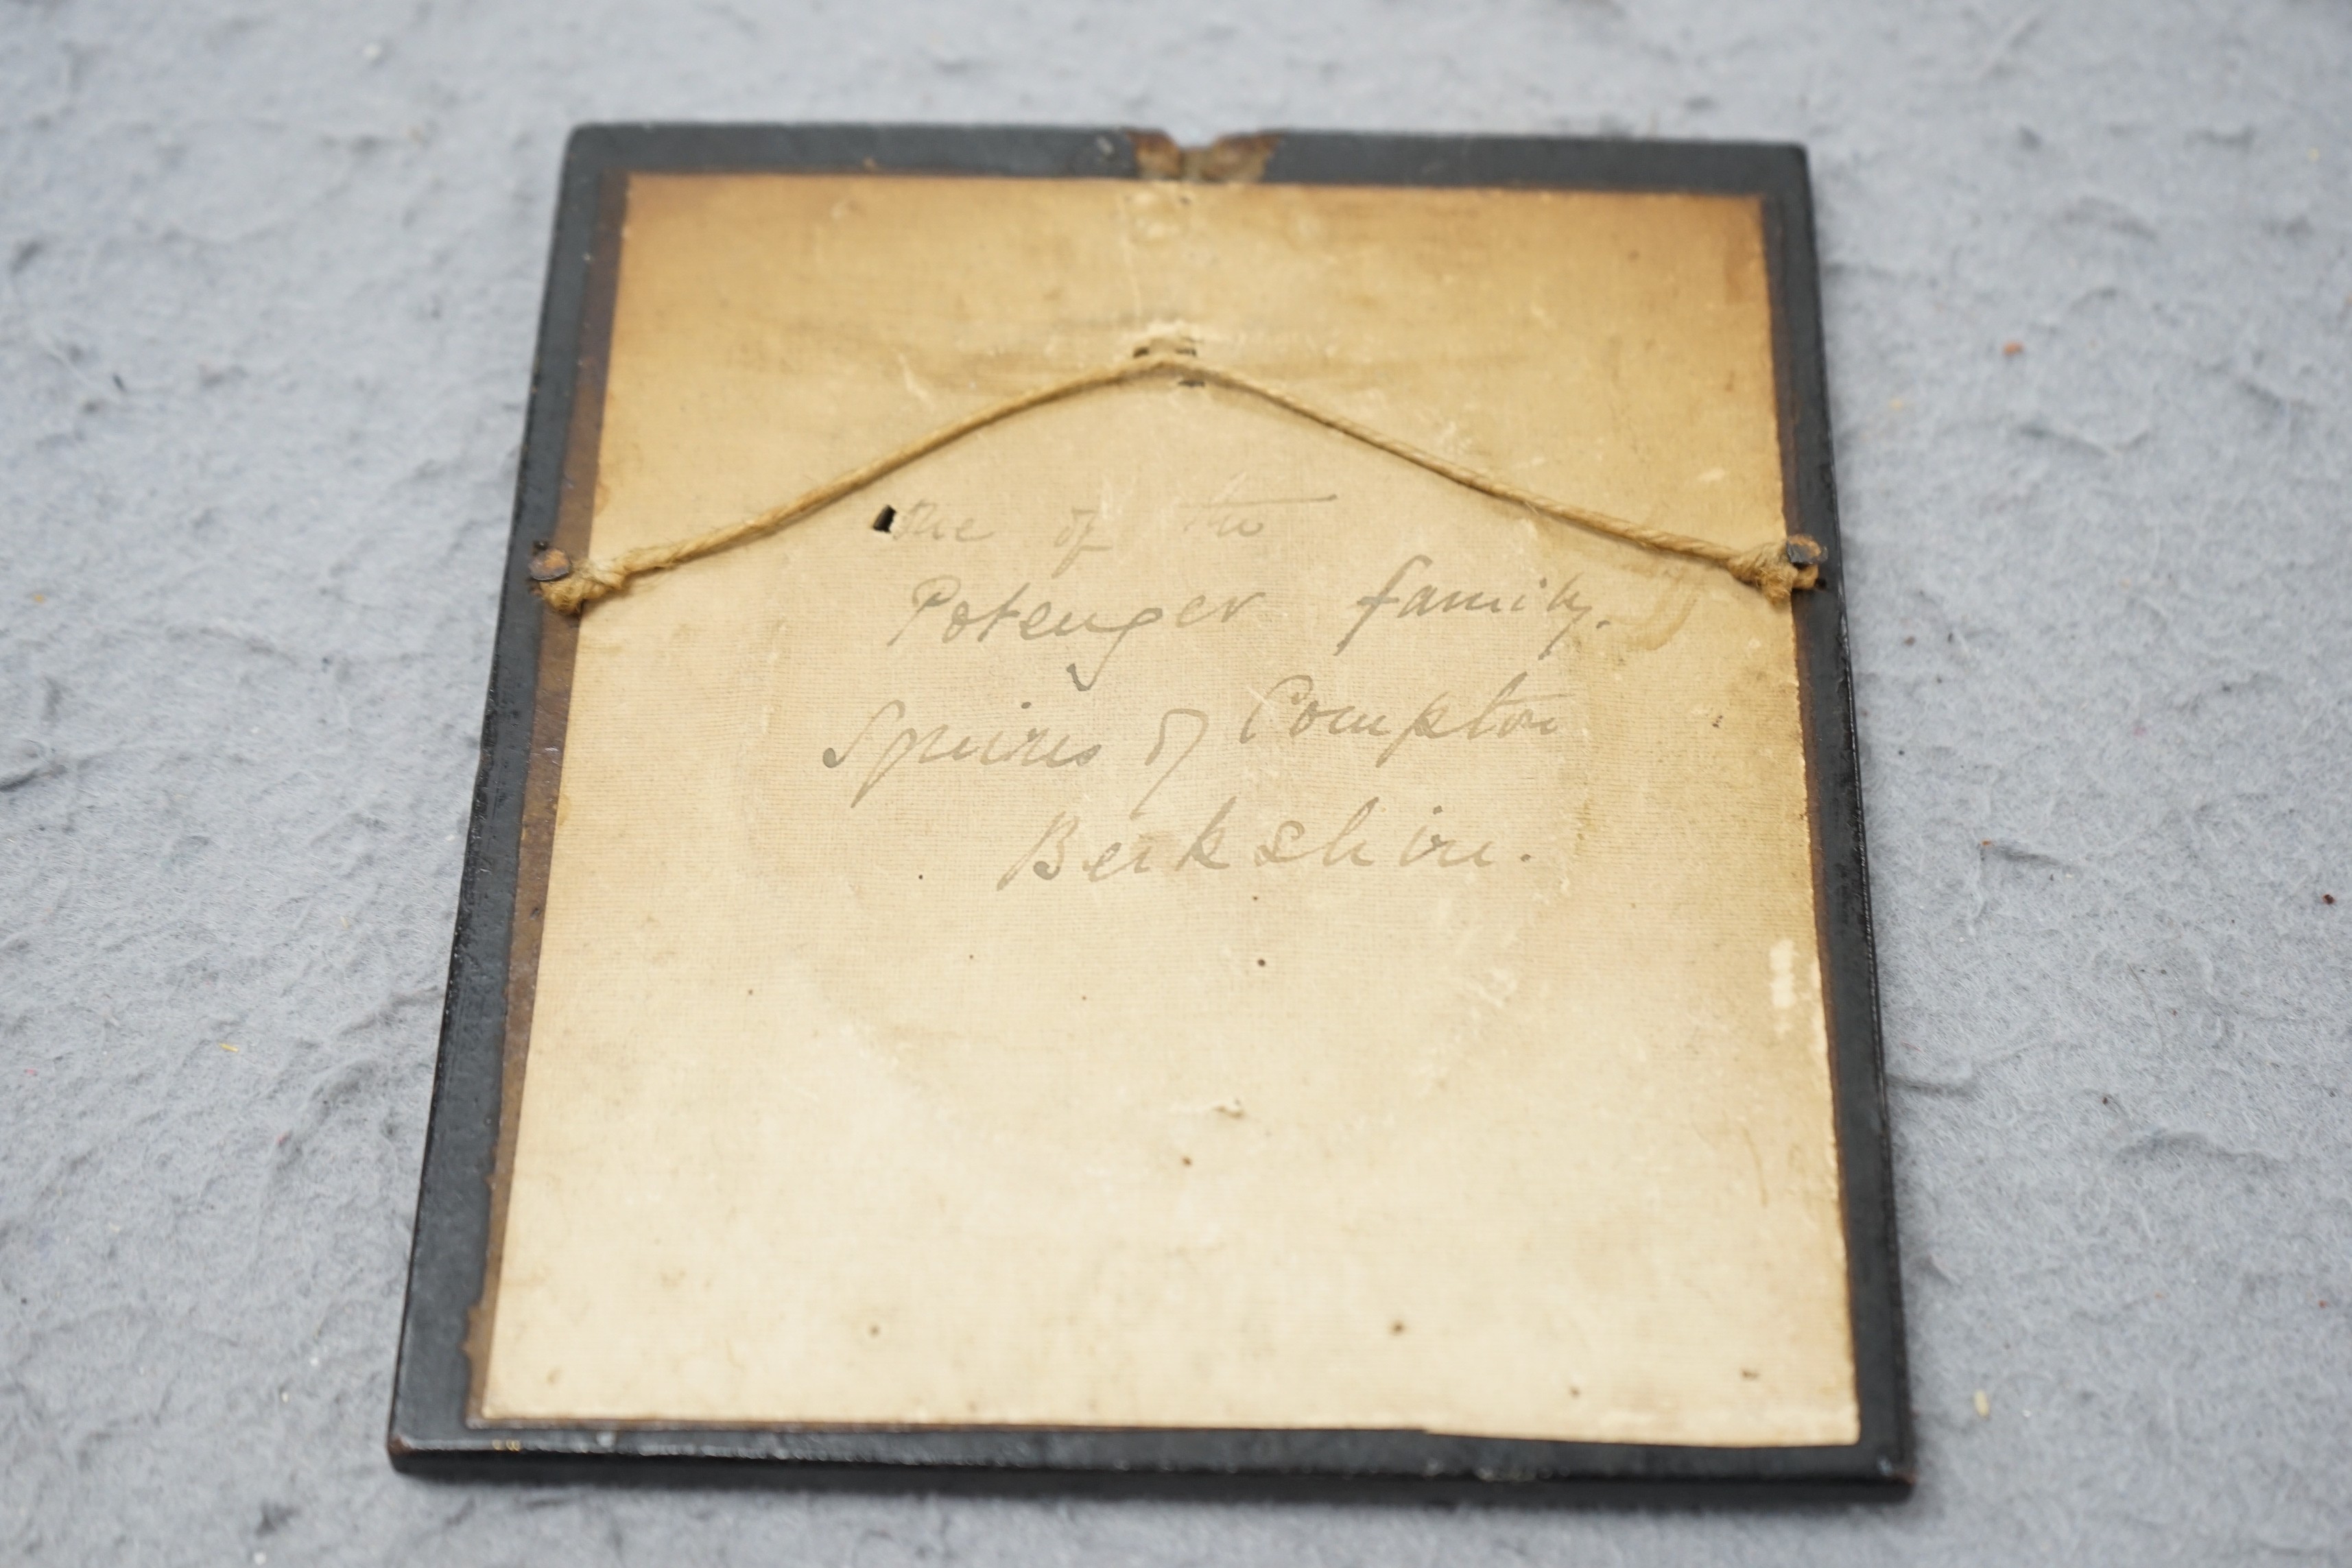 One of the
Potenger family.
Squires of Compton
Berkshire.